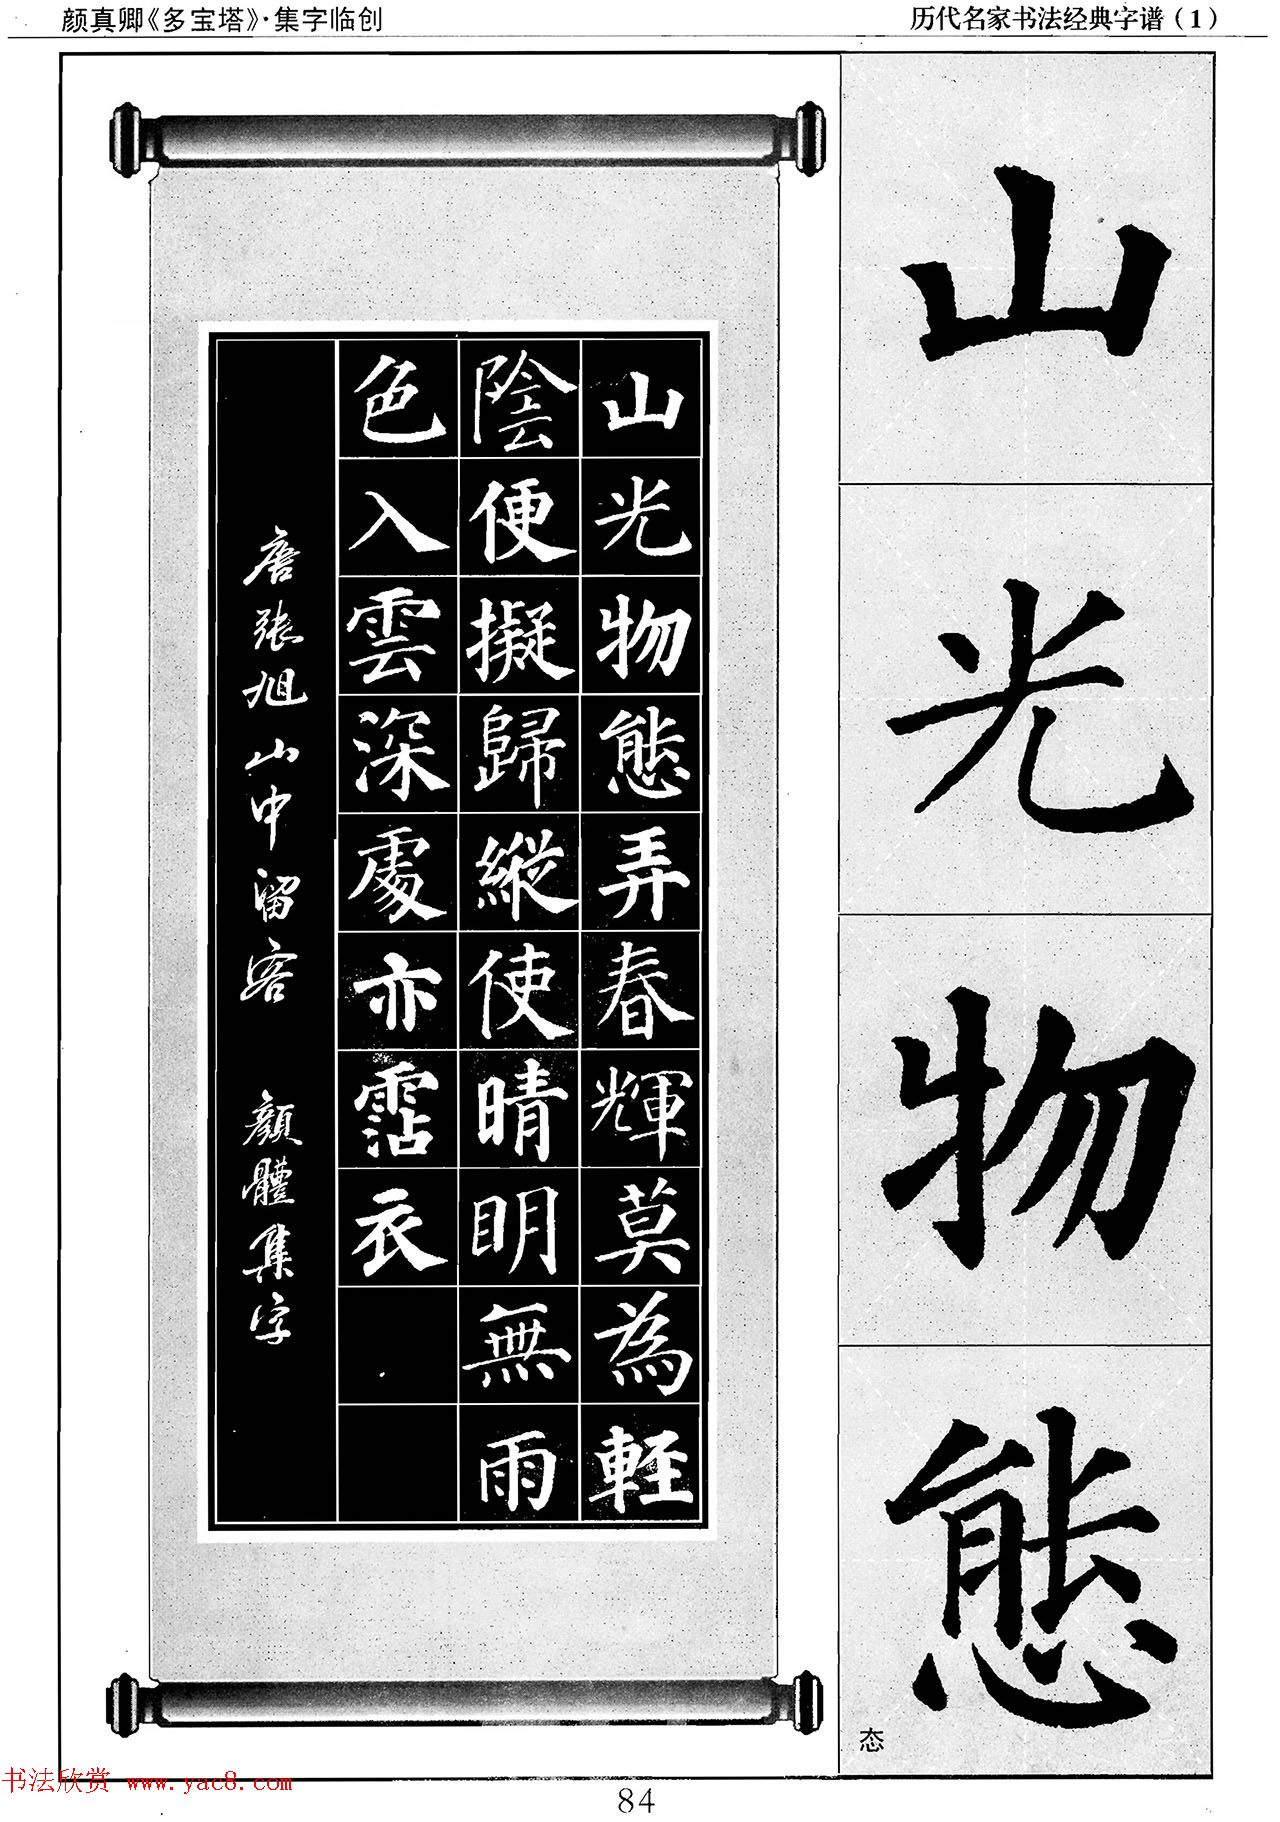 颜真卿《多宝塔》·集字临创
历代名家书法经典字谱（1）
山
光
物
態
态
山光物態弄春輝莫為輕
陰便擬歸縱使晴明無雨
色入雲深處亦霑衣
唐張旭山中留客 顏體集字
书法欣赏 www.yac8.com
84